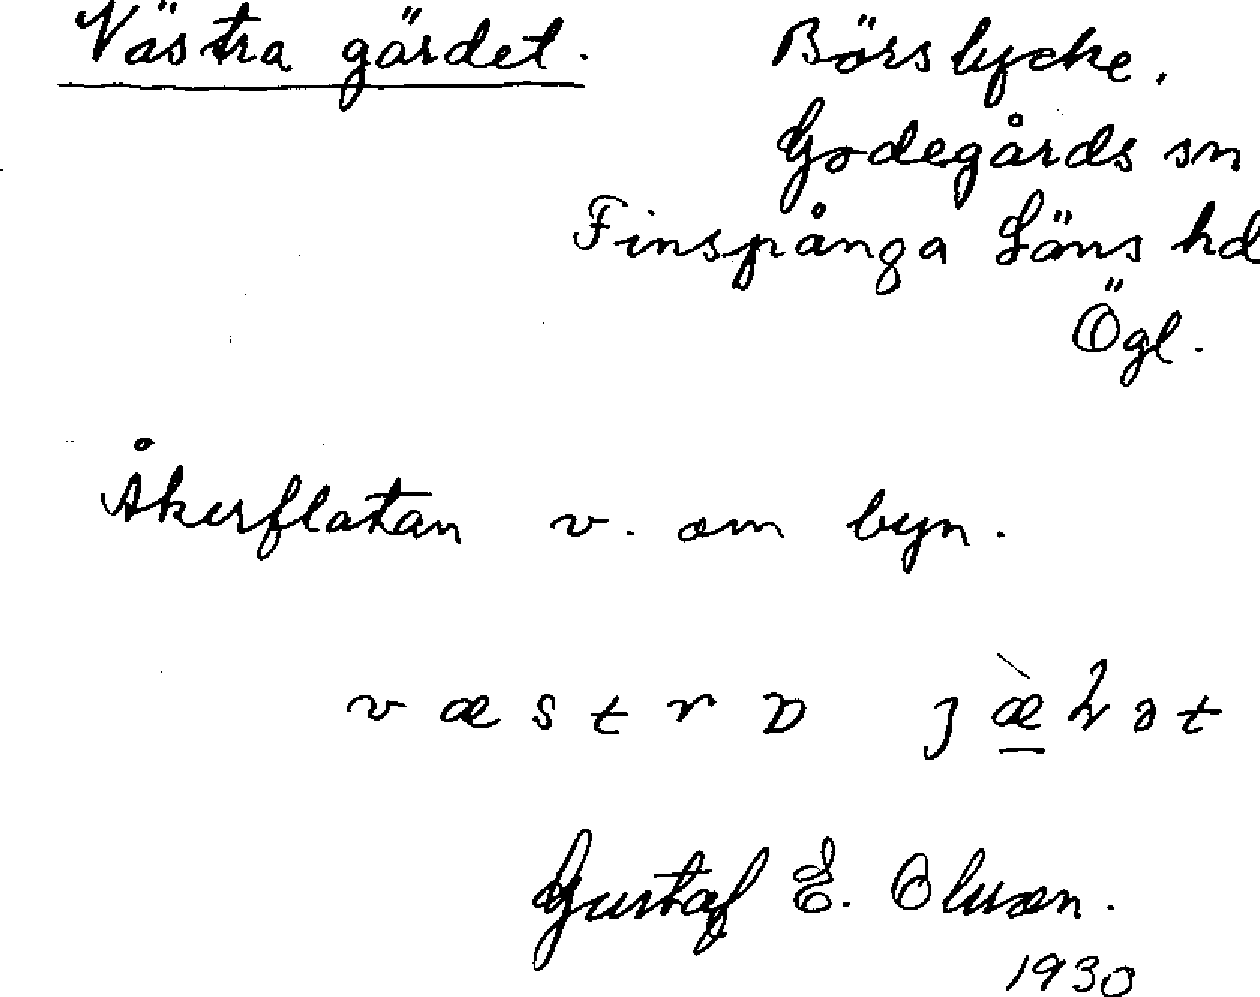 Västra gärdet. Börslycke.
Godegårds sn
Finspånga Läns hd
Ögl.
Åkerflatan v. om byn.
Gustaf E. Olsson.
1930